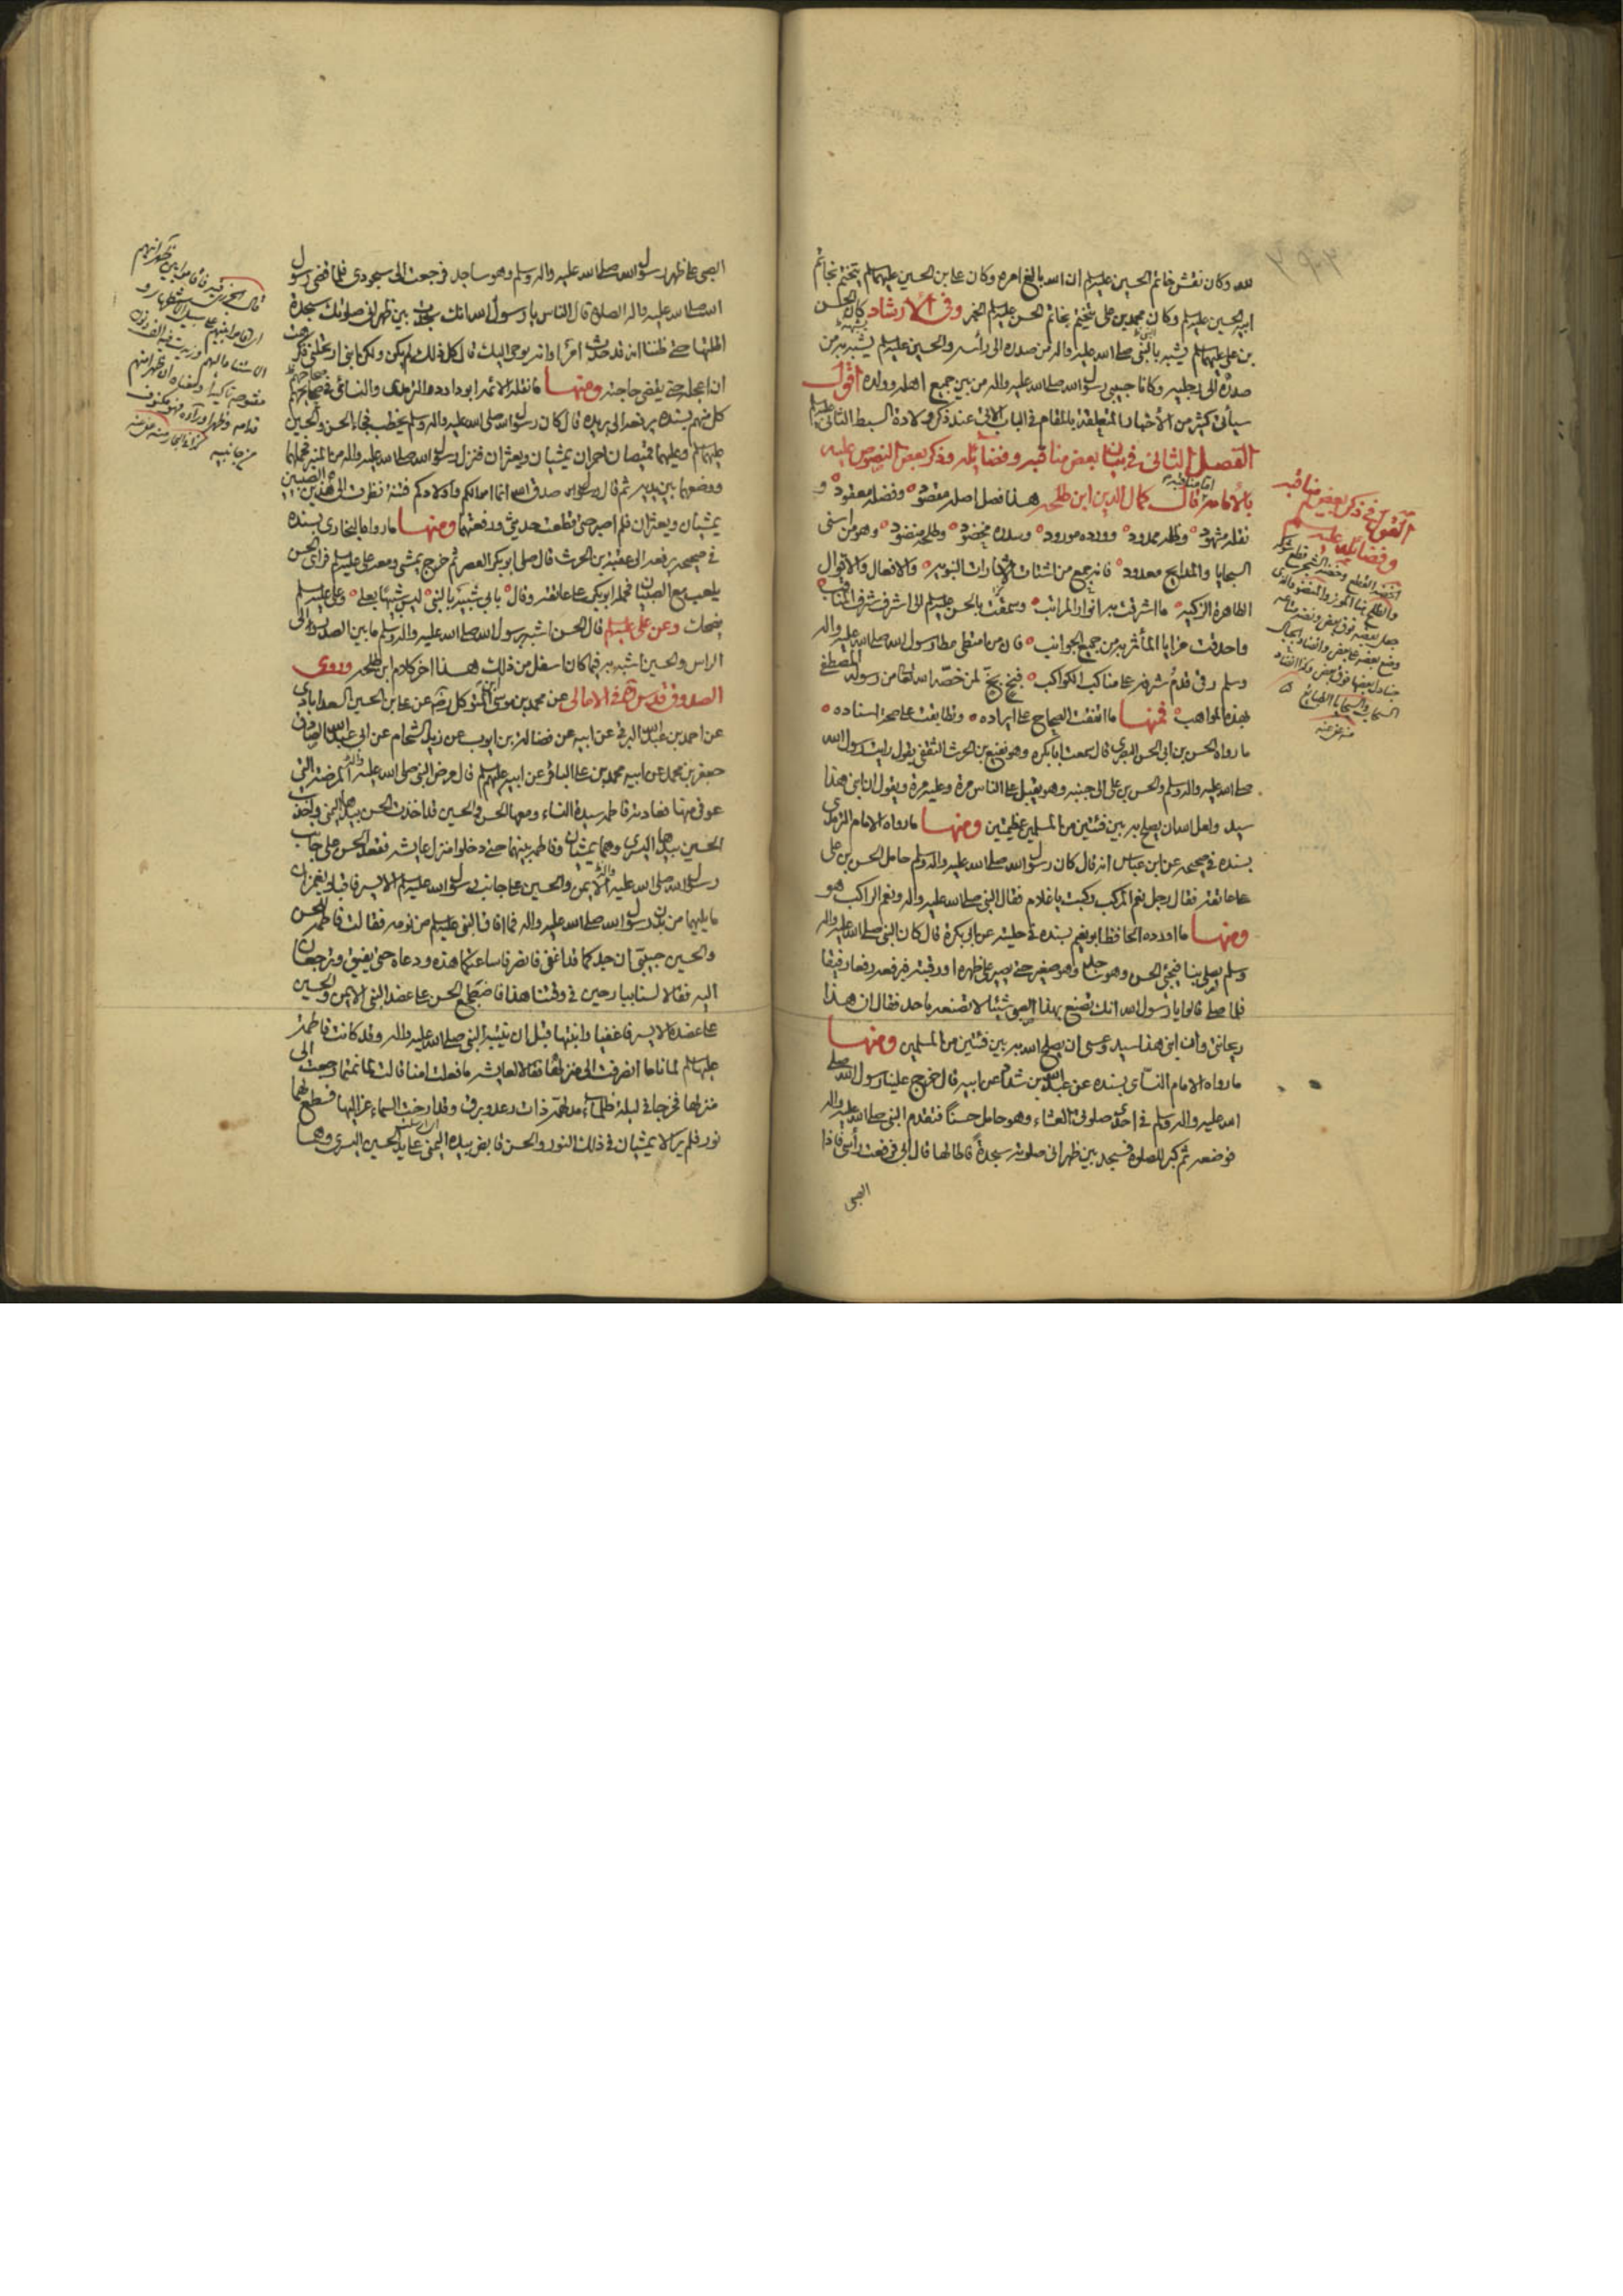 لله وكان نقش خاتم الحسين عليه السلم ان الله بالغ امره وكان علي بن الحسين عليهما السلم يتختم بخاتم
ابيه الحسين عليه السلم وكان محمد بن علي يتختم بخاتم الحسين عليه السلم الخبر وفي الارشاد كان الحسن
بن علي عليهما السلم يشبه بالنبي صلى الله عليه واله من صدره الى رأسه والحسين عليه السلم يشبه به من
صدره الى رجليه وكانا حبيبي رسول الله صلى الله عليه واله من بين جميع اهله وولده اقول
سيأتي كثير من الأخبار المتعلقة بالمقام في الباب الاتي عند ذكر ولادة السبط الثاني عليه السلم
الفصل الثاني في بيان بعض مناقبه وفضائله وذكر بعض النصوص عليه
بالامامة قال كمال الدين ابن طلحة هذا فصل اصله مقصود وفضله معقود و
نقله مشهود وظله ممدود وورده مورود وسدره مخضود وطلحه منضود وهو من اسنى
السجايا والمدايح معدود فانه جمع من اشتات الاشارات النبوية والافعال والاقوال
الطاهرة الزكية ما اشرقت به انوار المراتب وسمقت بالحسن عليه السلم الى اشرف شرف المناقب
واحدقت مزايا المآثر به من جميع الجوانب فان من امتطى مطا رسول الله صلى الله عليه واله
وسلم رقى قدم شرفه على مناكب الكواكب فبخ بخ لمن خصه الله تعالى من رسوله المصطفى
بهذه المواهب فمنها ما اتفقت الصحاح على ايراده وتطابقت على صحة اسناده
ما رواه الحسن بن ابي الحسن البصري قال سمعت ابا بكرة وهو نفيع بن الحرث الثقفي يقول رايت رسول الله
صلى الله عليه واله وسلم والحسن بن علي الى جنبه وهو يقبل على الناس مرة وعليه مرة ويقول ان ابني هذا
سيد ولعل الله ان يصلح به بين فئتين من المسلمين عظيمتين ومنها ما رواه الامام الترمذي
بسنده في صحيحه عن ابن عباس انه قال كان رسول الله صلى الله عليه واله وسلم حامل الحسن بن علي
على عاتقه فقال رجل نعم المركب ركبت يا غلام فقال النبي صلى الله عليه واله ونعم الراكب هو
ومنها ما اورده الحافظ ابو نعيم بسنده في حليته عن ابي بكرة قال كان النبي صلى الله عليه واله
وسلم يصلي بنا فيجئ الحسن وهو ساجد وهو صغير حتى يصير على ظهره او رقبته فيرفعه رفعا رفيقا
فلما صلى قالوا يا رسول الله انك تصنع بهذا الصبي شيئا لا تصنعه باحد فقال ان هذا
ريحانتي وان ابني هذا سيد وعسى ان يصلح الله به بين فئتين من المسلمين ومنها
ما رواه الامام النسائي بسنده عن عبد الله بن شداد عن ابيه قال خرج علينا رسول الله صلى
الله عليه واله وسلم في احدى صلوتي العشاء وهو حامل حسنا فتقدم النبي صلى الله عليه واله
فوضعه ثم كبر للصلوة فسجد بين ظهراني صلوته سجدة فاطالها قال ابي فرفعت رأسي فاذا
الصبي
القول في ذكر بعض مناقبه
وفضائله عليه السلم
الصبي على ظهر رسول الله صلى الله عليه واله وسلم وهو ساجد فرجعت الى سجودي فلما قضى رسول
الله صلى الله عليه واله الصلوة قال الناس يا رسول الله انك سجدت بين ظهراني صلوتك سجدة
اطلتها حتى ظننا انه قد حدث امر او انه يوحى اليك قال كل ذلك لم يكن ولكن ابني ارتحلني فكرهت
ان اعجله حتى يقضي حاجته ومنها ما نقله الائمة ابو داود والترمذي والنسائي في صحاحهم
كل منهم بسنده يرفعه الى بريدة قال كان رسول الله صلى الله عليه واله وسلم يخطب فجاء الحسن والحسين
عليهما السلم وعليهما قميصان احمران يمشيان ويعثران فنزل رسول الله صلى الله عليه واله من المنبر فحملهما
ووضعهما بين يديه ثم قال صدق الله انما اموالكم واولادكم فتنة نظرت الى هذين الصبيين
يمشيان ويعثران فلم اصبر حتى قطعت حديثي ورفعتهما ومنها ما رواه البخاري بسنده
في صحيحه يرفعه الى عقبة بن الحرث قال صلى ابو بكر العصر ثم خرج يمشي ومعه علي عليه السلم فراى الحسن
يلعب مع الصبيان فحمله ابو بكر على عاتقه وقال بابي شبيه بالنبي ليس شبيها بعلي وعلي عليه السلم
يضحك وعن علي عليه السلم قال الحسن اشبه برسول الله صلى الله عليه واله وسلم ما بين الصدر الى
الراس والحسين اشبه به فيما كان اسفل من ذلك هذا اخر كلام ابن طلحة وروى
الصدوق قدس سره في الامالي عن محمد بن موسى بن المتوكل رضه عن علي بن الحسين السعدابادي
عن احمد بن عبد الله البرقي عن ابيه عن فضالة بن ايوب عن زيد الشحام عن ابي عبد الله الصادق
جعفر بن محمد عن ابيه محمد بن علي الباقر عن ابيه عليهم السلم قال مرض النبي صلى الله عليه واله المرضة التي
عوفي منها فعادته فاطمة سيدة النساء ومعها الحسن والحسين قد اخذت الحسن بيدها اليمنى واخذت
الحسين بيدها اليسرى وهما يمشيان وفاطمة بينهما حتى دخلوا منزل عايشة فقعد الحسن على جانب
رسول الله صلى الله عليه واله الايمن والحسين على جانب رسول الله عليه السلم الايسر فاقبلا يغمزان
ما يليهما من بدن رسول الله صلى الله عليه واله فما افاق النبي عليه السلم من نومه فقالت فاطمة للحسن
والحسين حبيبي ان جدكما قد اغفى فانصرفا ساعتكما هذه ودعاه حتى يفيق وترجعان
اليه فقالا لسنا ببارحين في وقتنا هذا فاضطجع الحسن على عضد النبي الايمن والحسين
على عضده الايسر فاغفيا وانتبها قبل ان ينتبه النبي صلى الله عليه واله وقد كانت فاطمة
عليها السلم لما ناما انصرفت الى منزلها فقالا لعايشة ما فعلت امنا قالت لما نمتما رجعت الى
منزلها فخرجا في ليلة ظلماء مدلهمة ذات رعد وبرق وقد ارخت السماء عزاليها فسطع لهما
نور فلم يزالا يمشيان في ذلك النور والحسن قابض بيده اليمنى على يد الحسين اليسرى وهما